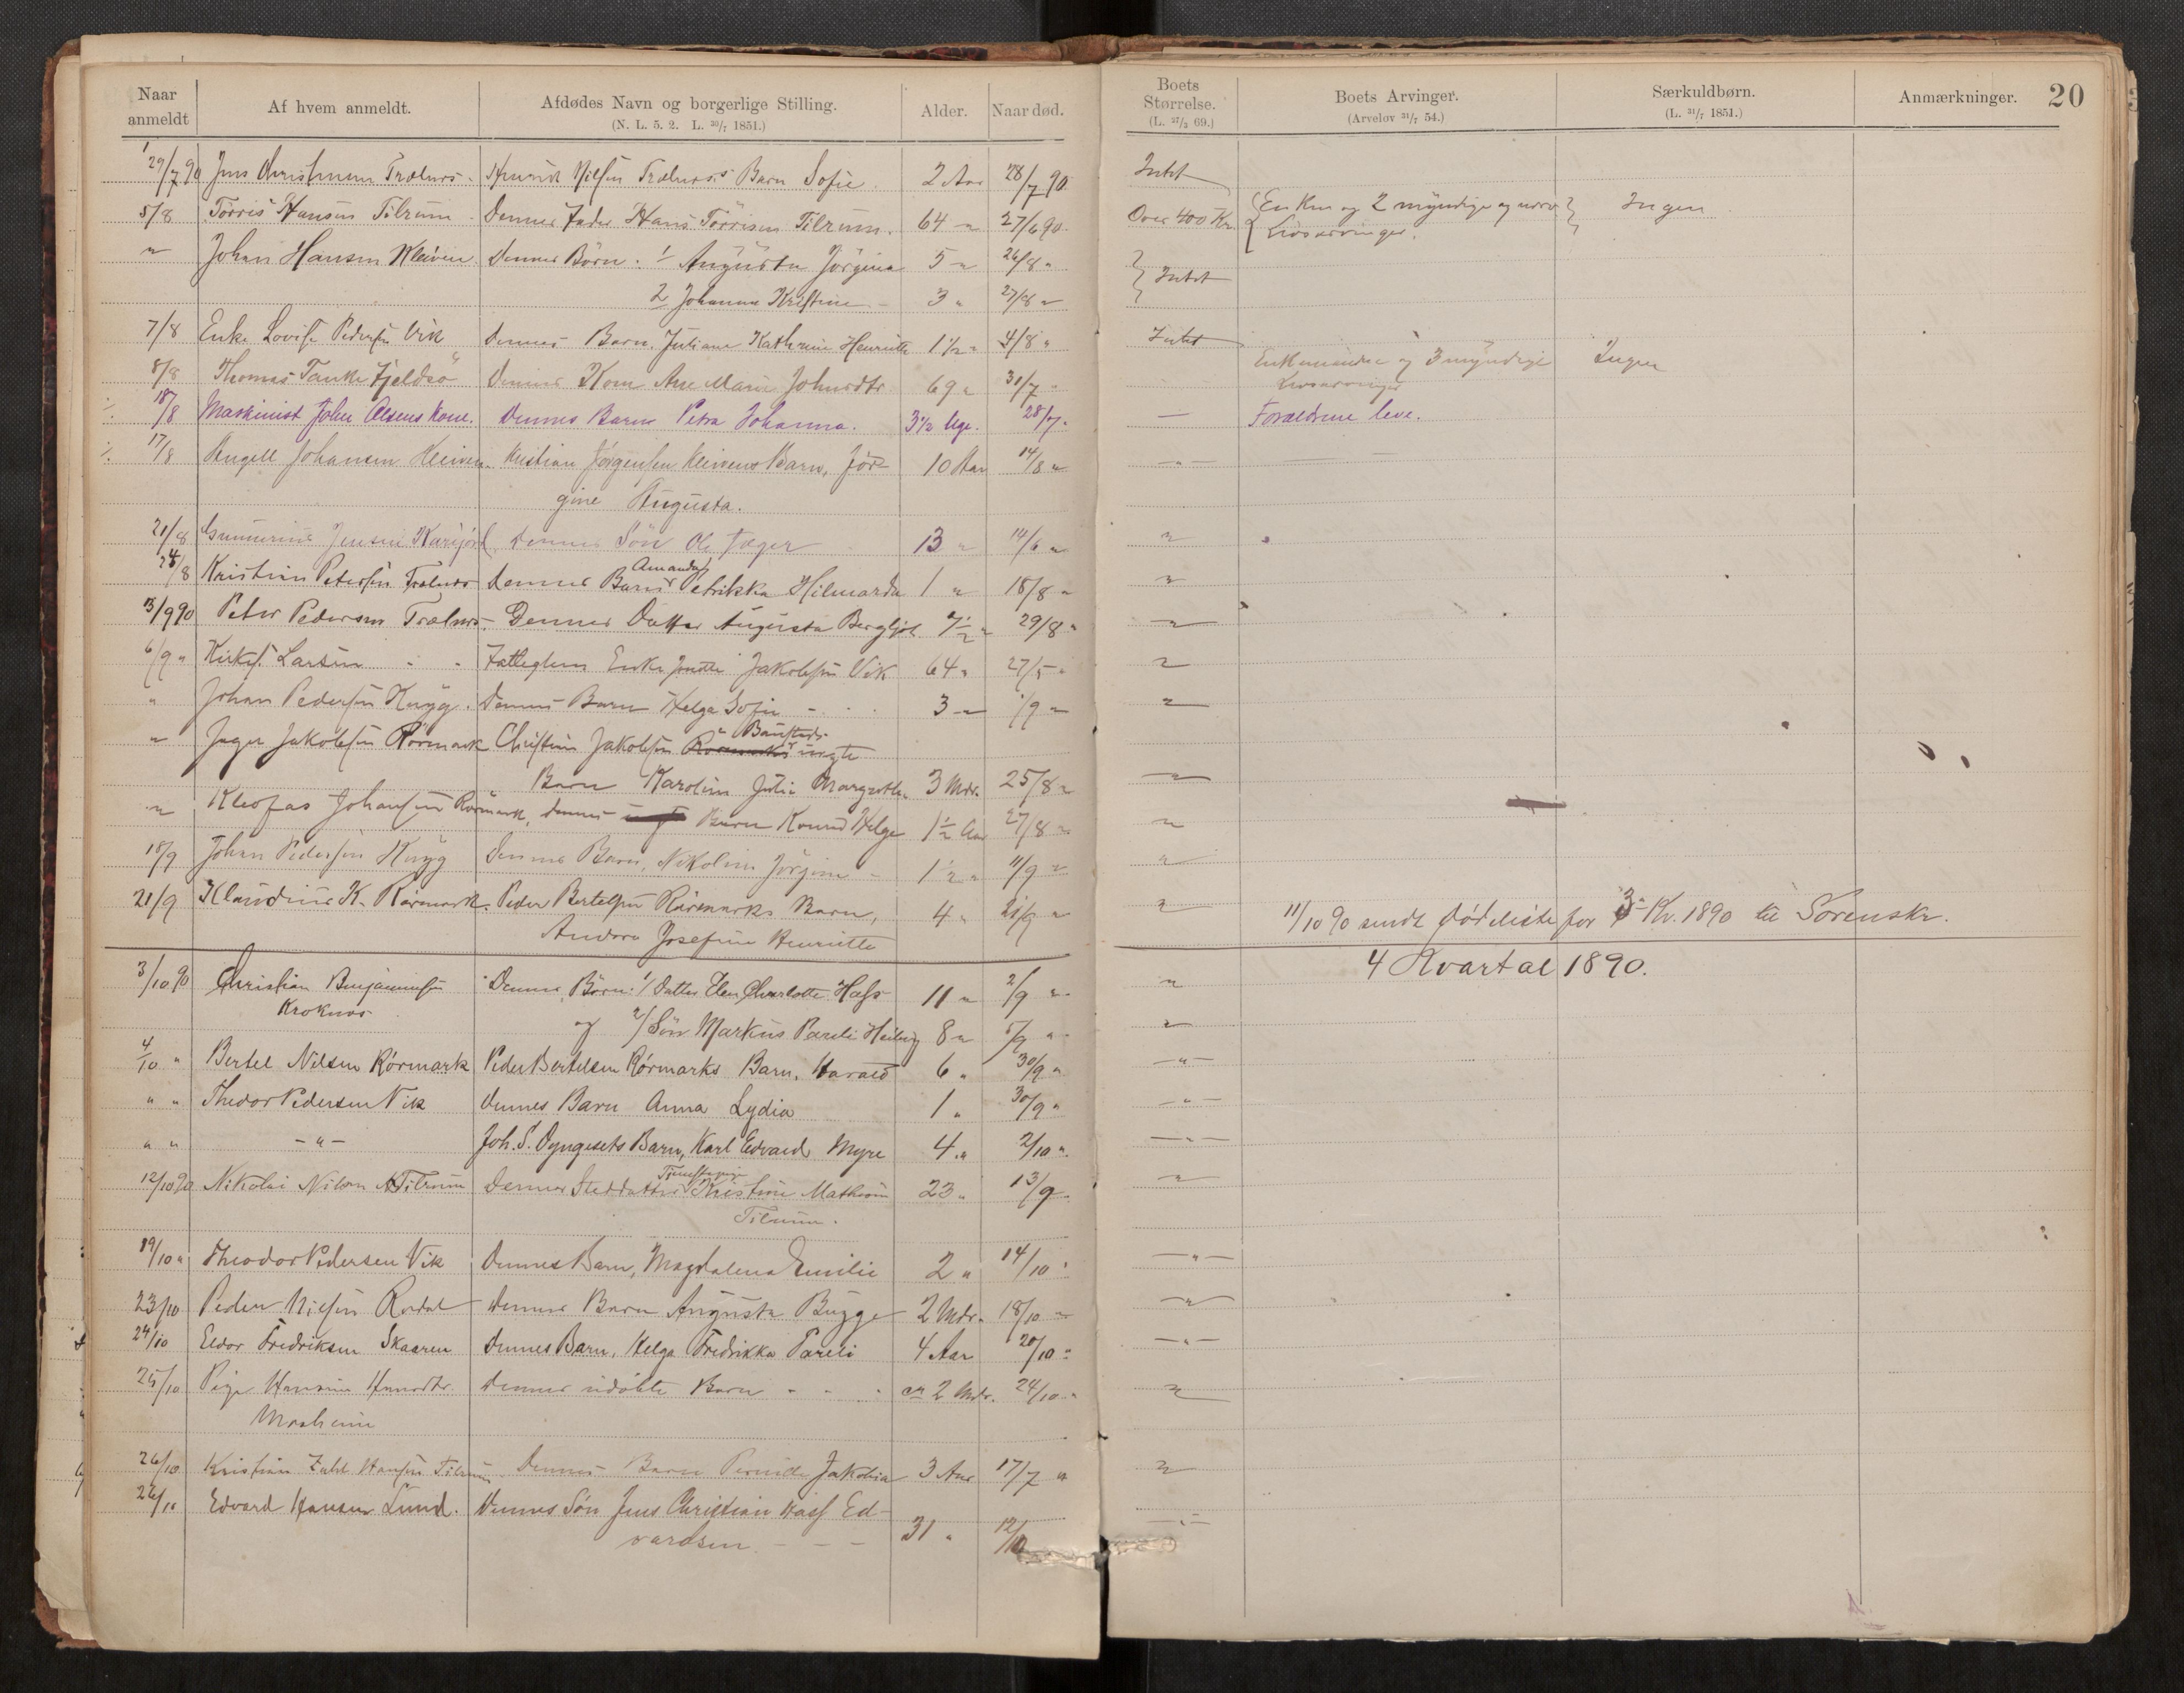 Naar anmeldt
Af hvem anmeldt.
Afdødes Navn og borgerlige Stilling.
(N. L. 5. 2. L. 30/7 1851.)
Alder.
Naar død.
Boets Størrelse.
(L. 27/3 69.)
Boets Arvinger.
(Arvelov 31/7 54.)
Særkuldbørn.
(L. 31/7 1851.)
Anmærkninger.
20
29/7 90 Jens Christensen Trælnes. Henrik Nilsen Trælness Barn Sofie. 2 Aar 28/7 90. Intet
5/8 Törris Hansen Tilrum. Dennes Fader Hans Törrisen Tilrum. 64 " 27/6 90. Over 400 Kr. Enken og 2 myndige og Ingen
Livsarvinger.
" Johan Hansen Kleiven Dennes Börn: 1/ Augusta Jörgina 5 " 26/8 " Intet
2 Johanna Kristine 3 " 27/8 "
7/8 Enke Lovise Pedersen Vik Dennes Barn, Juliane Kathrine Henriette 1 1/2 " 4/8 " Intet
8/8 Thomas Tanke Fjeldsö Dennes Kone Ane Marie Johnsdtr. 69 " 31/7 " Enkemanden og 3 myndige Ingen
Livsarvinger
18/8 Maskinist Johan Olsens Kone. Dennes Barn Petra Johanna. 3 1/2 Uge. 28/7. — Forældrene leve.
17/8 Angell Johansen Kleiven. Kristian Jörgensen Kleivens Barn, Jör- 10 Aar 14/8 " — " —
gine Augusta.
21/8 Jensen Dennes Sön Ole Jæger 13 " 14/6 " "
24/8 Kristian Petersen Trælnes Dennes Barn Amanda Petrikka Hilmarda 1 " 18/8 " "
3/9 90 Peter Pedersen Trælnes. Dennes Datter Augusta Bergljot 7 1/2 " 29/8 " "
6/9 " Kirkes. Larsen Fattiglem Enke Jakobsen Vik 64 " 27/5 " "
" Johan Pedersen Hugg. Dennes Barn Helga Sofie 3 " 1/9 " "
" Jakobsen Rörmark Christian Jakobsen Rörmarks Baustads uægte
Barn Karoline Julie Margrethe 3 Mdr. 25/8 " "
" Kleofas Johansen Rörmark, dennes Barn Konrad Helge 1 1/2 Aar 27/8 " "
18/9 Johan Pedersen Hugg Dennes Barn, Nikoline Jörgine 1 1/2 " 11/9 " "
21/9 Klaudius K. Rörmark. Peder Bertelsen Rörmarks Barn, 4 " 21/9 " "
Andora Josefine Henriette
11/10 90 sendt Dødeliste for 3 Kv. 1890 til Sorenskr.
4 Kvartal 1890.
3/10 90 Christian Benjaminsen Dennes Börn: 1/ Datter Elen Charlotte Hass 11 " 2/9 " "
Kroknes og 2/ Sön Markus Pareli Hedvig 8 " 5/9 " "
4/10 " Bertel Nilsen Rørmark Peder Bertelsen Rørmarks Barn, Harald 6 " 30/9 " — " —
" " Thedor Pedersen Vik Dennes Barn Anna Lydia 1 " 30/9 " — " —
" " — " — Joh. S. Dyngesets Barn, Karl Edvard Myre 4 " 2/10 " — " —
12/10 90 Nikolai Nilsen Tilrum Dennes Steddatter Tjenestepige Kristine Mathea 23 " 13/9 "
Tilrum.
19/10 " Theodor Pedersen Vik Dennes Barn, Magdalena Emilie 2 " 14/10 " — " —
23/10 Peder Nilsen Rodal Dennes Barn Augusta Bugge 2 Mdr. 18/10 " "
24/10 Eldor Fredriksen Skaaren Dennes Barn, Helga Fredrikka Pareli 4 Aar 20/10 " — " —
25/10 Pige Hansine dennes udöbte Barn 2 Mdr. 24/10 " "
26/10 Kristian Zahl Hansen Tilrum Dennes Barn Pernille Jakobia 3 Aar 17/7 " "
26/10 Edvard Hansen Lund. Dennes Sön Jens Christian Hass Ed-
vardsen 31 " 12/10 — " —